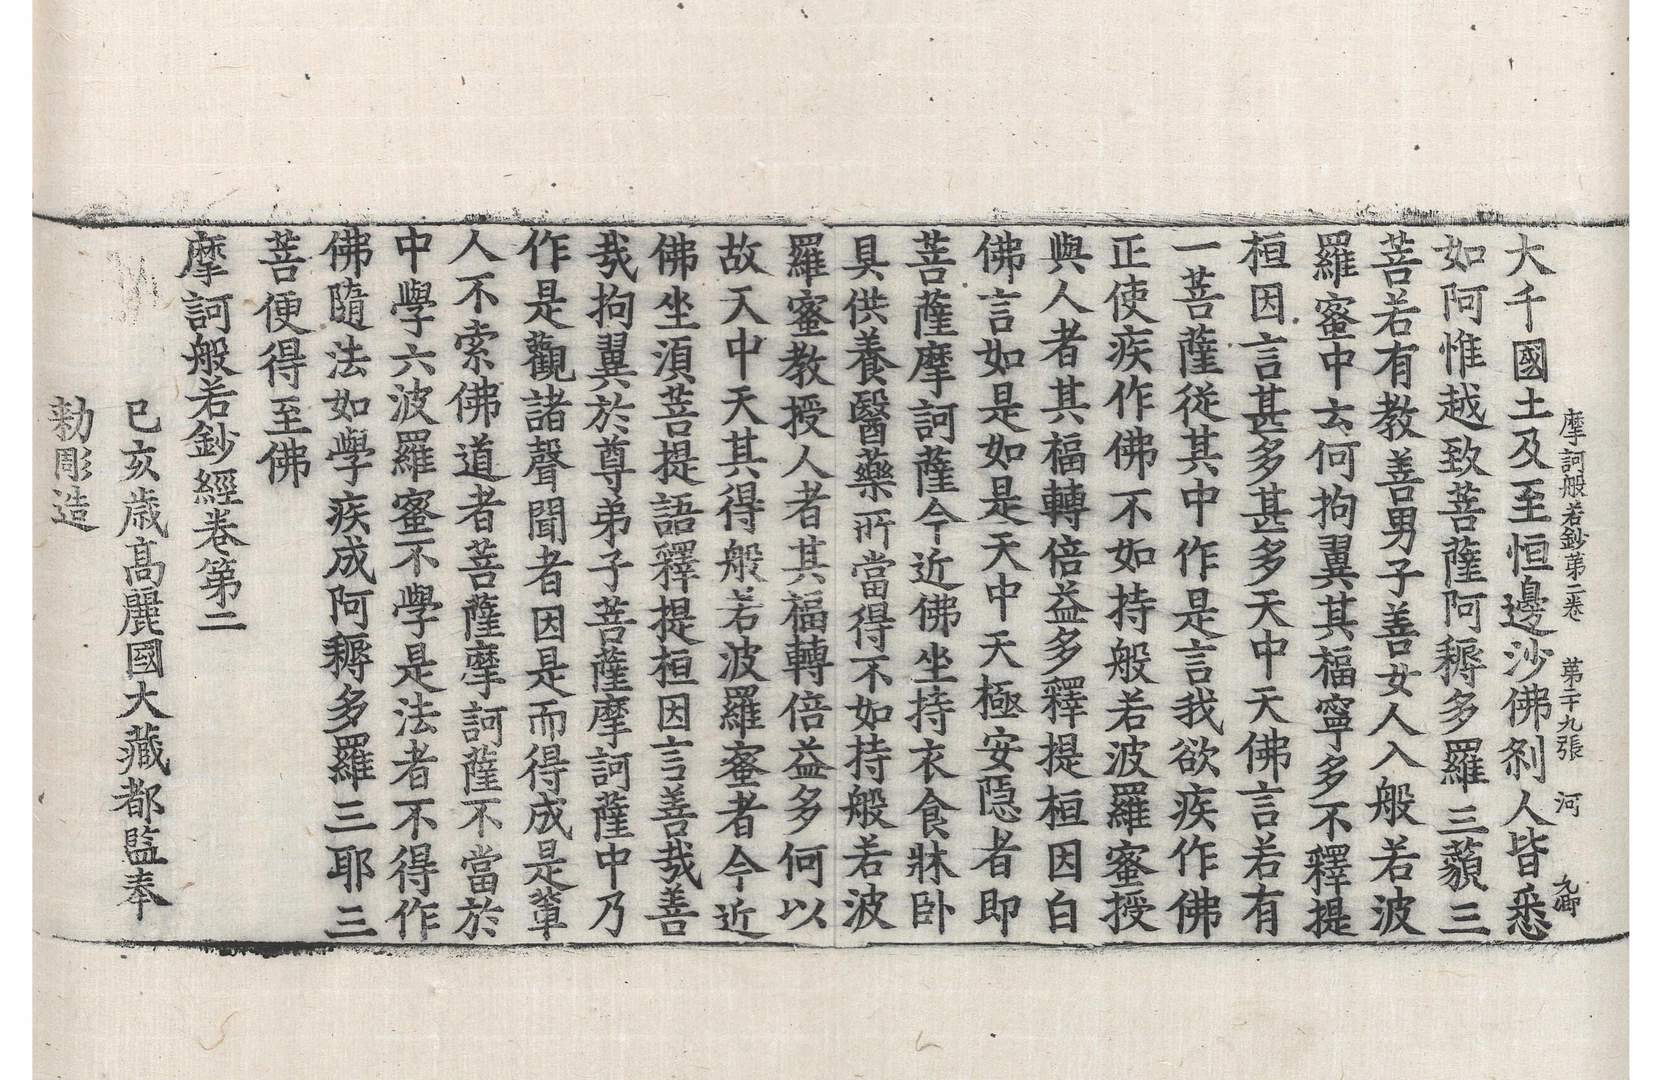 摩訶般若鈔第二卷 第二十九張 河
大千國土及至恒邊沙佛剎人皆悉
如阿惟越致菩薩阿耨多羅三藐三
菩若有教善男子善女人入般若波
羅蜜中云何拘翼其福寧多不釋提
桓因言甚多甚多天中天佛言若有
一菩薩從其中作是言我欲疾作佛
正使疾作佛不如持般若波羅蜜授
與人者其福轉倍益多釋提桓因白
佛言如是如是天中天極安隱者即
菩薩摩訶薩今近佛坐持衣食牀卧
具供養醫藥所當得不如持般若波
羅蜜教授人者其福轉倍益多何以
故天中天其得般若波羅蜜者今近
佛坐湏菩提語釋提桓因言善哉善
哉拘翼於尊弟子菩薩摩訶薩中乃
作是觀諸聲聞者因是而得成是輩
人不索佛道者菩薩摩訶薩不當於
中學六波羅蜜不學是法者不得作
佛隨法如學疾成阿耨多羅三耶三
菩便得至佛
摩訶般若鈔經卷第二
己亥歲高麗國大藏都監奉
勅彫造